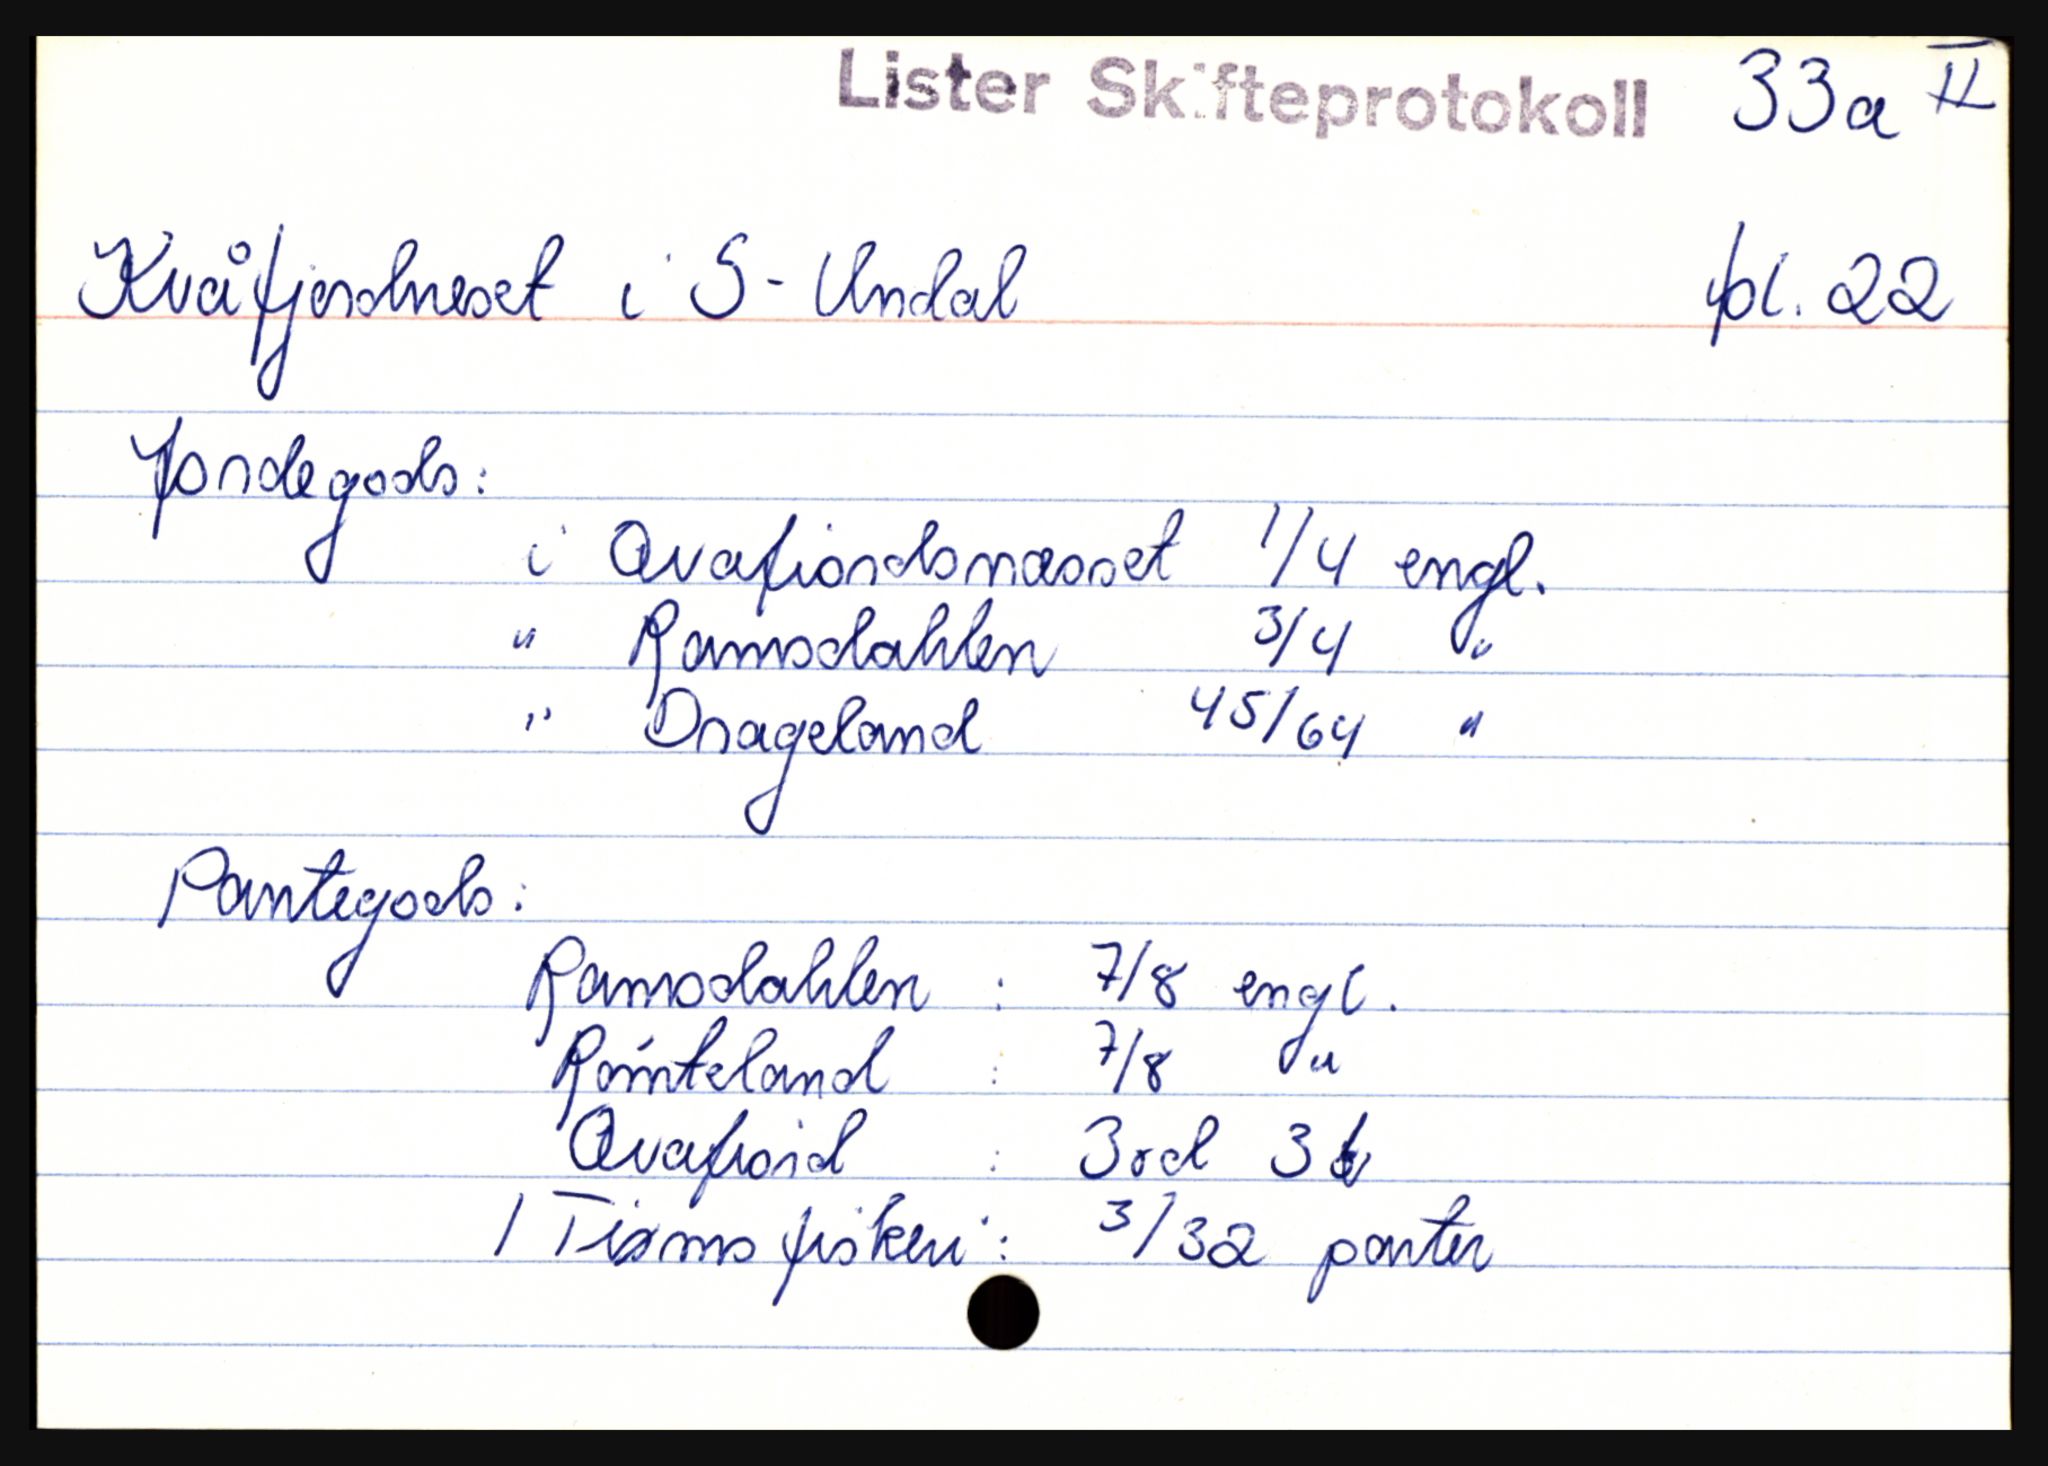 Lister Skifteprotokoll 33a II
Kvåfjordneset i S-Undal pl. 22
Jordegods:
i Qvafiordsnæsset 1/4 engl.
" Ramsdahlen 3/4 "
" Drageland 45/64 "
Pantegods:
Ramsdahlen : 7/8 engl.
Røinteland : 7/8 "
Qvafiord : 3rd 3
fiskeri : 3/32 parter